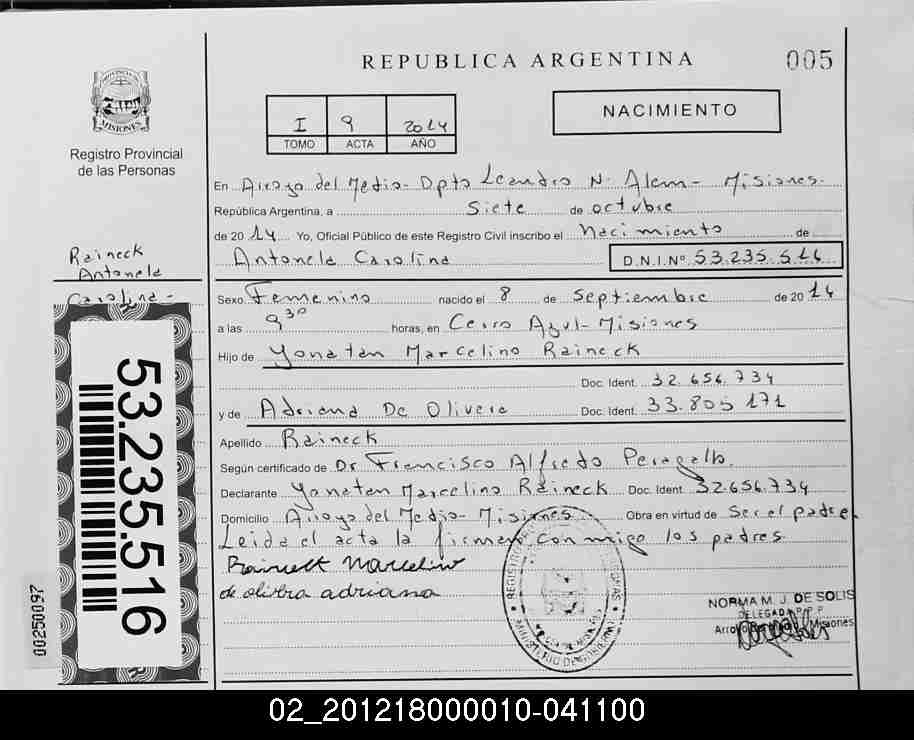 REPUBLICA ARGENTINA
005
PROVINCIA DE
MISIONES
Registro Provincial
de las Personas
I 9 2014
TOMO ACTA AÑO
NACIMIENTO
En Arroyo del Medio - Dpto Leandro N. Alem - Misiones.
República Argentina, a Siete de octubre
de 2014 Yo, Oficial Público de este Registro Civil inscribo el Nacimiento de
Antonela Carolina D.N.I.Nº 53.235.516
Raineck
Antonela
Carolina -
Sexo Femenino nacido el 8 de Septiembre de 2014
a las 9 30 horas, en Cerro Azul - Misiones
Hijo de Yonatan Marcelino Raineck
Doc. Ident. 32.656.734
y de Adriana De Olivera Doc. Ident. 33.805 171
Apellido Raineck
Según certificado de Dr Francisco Alfredo
Declarante Yonatan Marcelino Raineck Doc. Ident 32.656.734
Domicilio Arroyo del Medio - Misiones Obra en virtud de Ser el padre.
Leida el acta la firman conmigo los padres.
Raineck Marcelino
de olivera adriana
NORMA M. J. DE SOLIS
DELEGADA
Arroyo Misiones
53.235.516
00250097
02_201218000010-041100